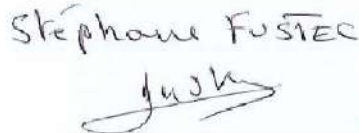 Stéphane FUSTEC